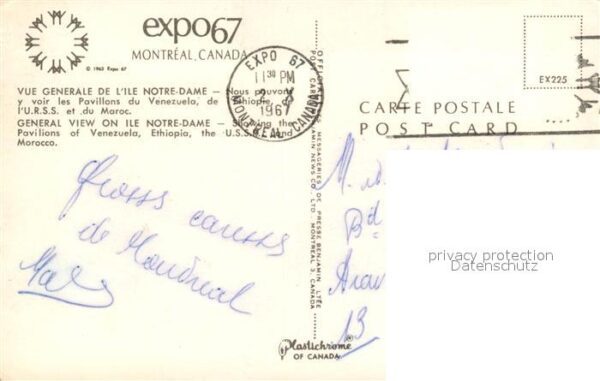 expo67
MONTRÉAL, CANADA
© 1963 Expo 67
VUE GENERALE DE L'ILE NOTRE-DAME — Nous pouvons
y voir les Pavillons du Venezuela, de l'Ethiopie, de
l'U.R.S.S. et du Maroc.
GENERAL VIEW ON ILE NOTRE-DAME — Showing the
Pavilions of Venezuela, Ethiopia, the U.S.S.R. and
Morocco.
EXPO 67
11 30 PM
1967
MONTREAL, CANADA
Grosses caresses
de Montreal
MESSAGERIES DE PRESSE BENJAMIN LTÉE
BENJAMIN NEWS CO. LTD. MONTREAL 3, CANADA
Plastichrome®
OF CANADA
EX225
CARTE POSTALE
POST CARD
M.
Bd
13
privacy protection
Datenschutz